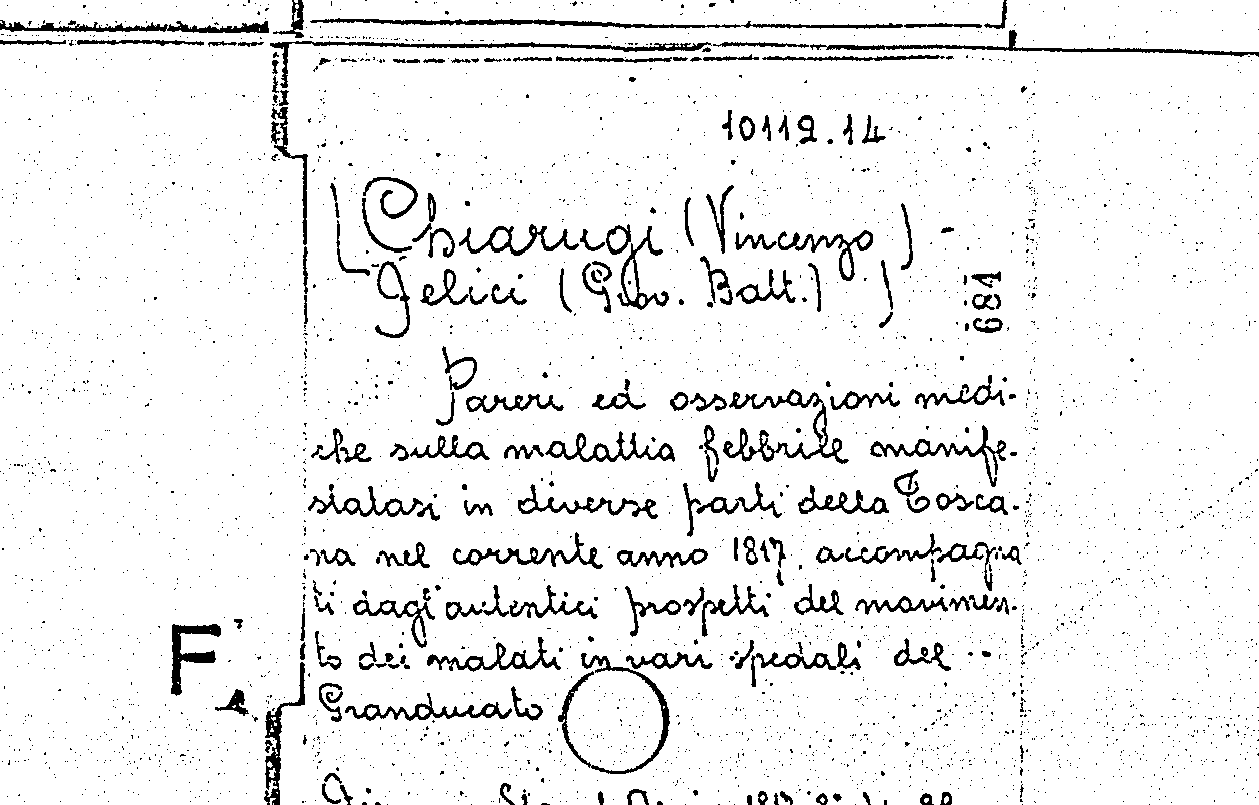 10112.14
Chiarugi (Vincenzo) -
Felici (Giov. Batt.) )
684
Pareri ed osservazioni medi-
che sulla malattia febbrile manife-
statasi in diverse parti della Tosca-
na nel corrente anno 1817, accompagna
ti dagl'autentici prospetti del movimen-
to dei malati in vari spedali del
Granducato
F